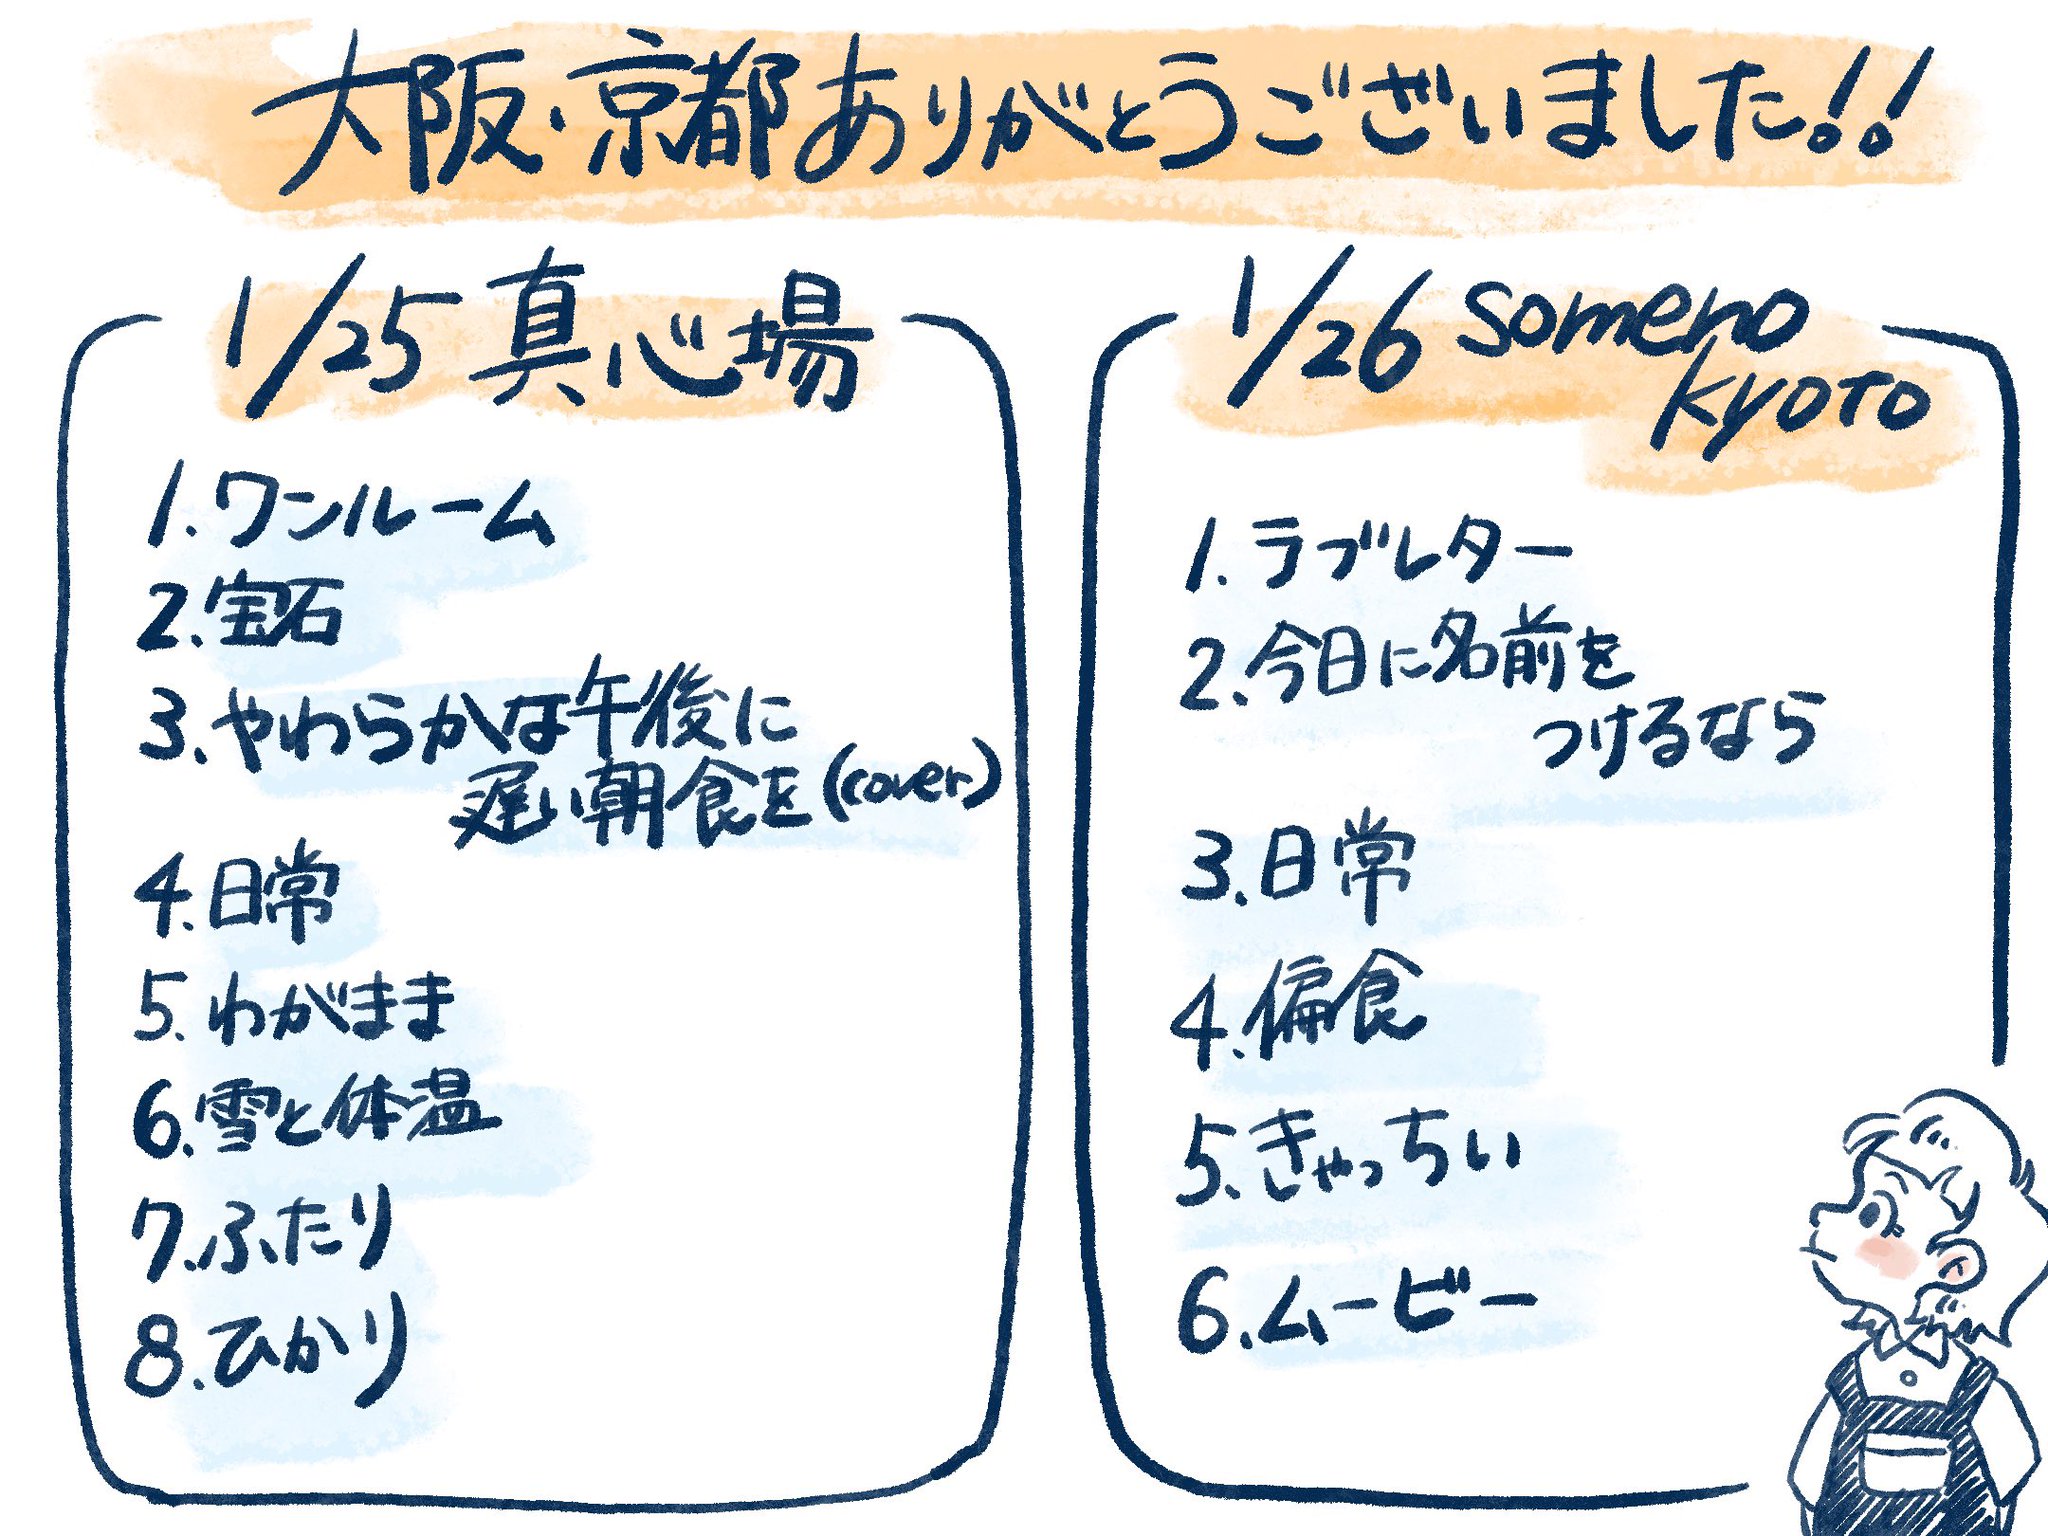 大阪・京都ありがとうございました!!
1/25 真心場
1. ワンルーム
2. 宝石
3. やわらかな午後に
遅い朝食を(cover)
4. 日常
5. わがまま
6. 雪と体温
7. ふたり
8. ひかり
1/26 someno
kyoto
1. ラブレター
2. 今日に名前を
つけるなら
3. 日常
4. 偏食
5. きゃっちい
6. ムービー